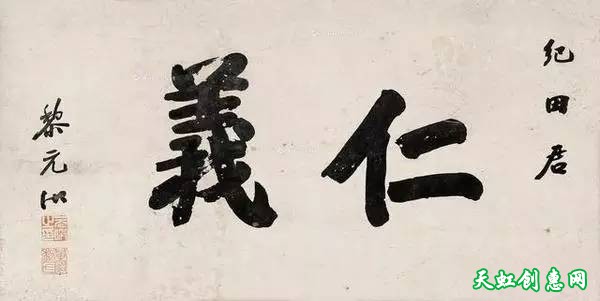 紀田君
仁義
黎元洪
天虹创惠网